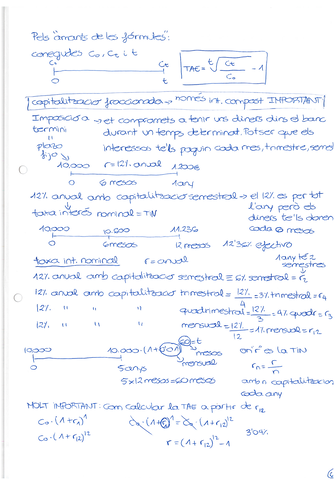 Pels "amants de les fórmules":
conegudes C₀, Ct i t
C₀ Ct
0 t
TAE = t√(Ct/C₀) - 1
Capitalització fraccionada → només int. compost IMPORTANT!
Imposició a → et compromets a tenir uns diners dins el banc
termini durant un temps determinat. Potser que els
plazo interessos te'ls paguin cada mes, trimestre, semes
fijo
10.000 r=12% anual
0 6 mesos 1 any
12% anual amb capitalització semestral → el 12% es per tot
l'any però els
diners te'ls donen
cada 6 mesos
taxa interès nominal = TIN
10.000 10.600 11.236
0 6 mesos 12 mesos 12'36% efectivo
taxa int. nominal r = anual 1 any té 2
semestres
12% anual amb capitalització semestral ≡ 6% semestral = r₂
12% anual amb capitalització trimestral = 12%/4 = 3% trimestral = r₄
12% " " " quadrimestral = 12%/3 = 4% quadr = r₃
12% " " " mensual = 12%/12 = 1% mensual = r₁₂
60 = t
mesos
10.000 10.000·(1+0'01)
mensual
0 5 anys
5x12 mesos = 60 mesos
on "r" es la TIN
rn = r/n
amb n capitalitzacions
cada any
MOLT IMPORTANT: com calcular la TAE a partir de r₁₂
C₀·(1+r)¹ C₀·(1+r)¹ = C₀·(1+r₁₂)¹²
C₀·(1+r₁₂)¹² r = (1+r₁₂)¹² - 1